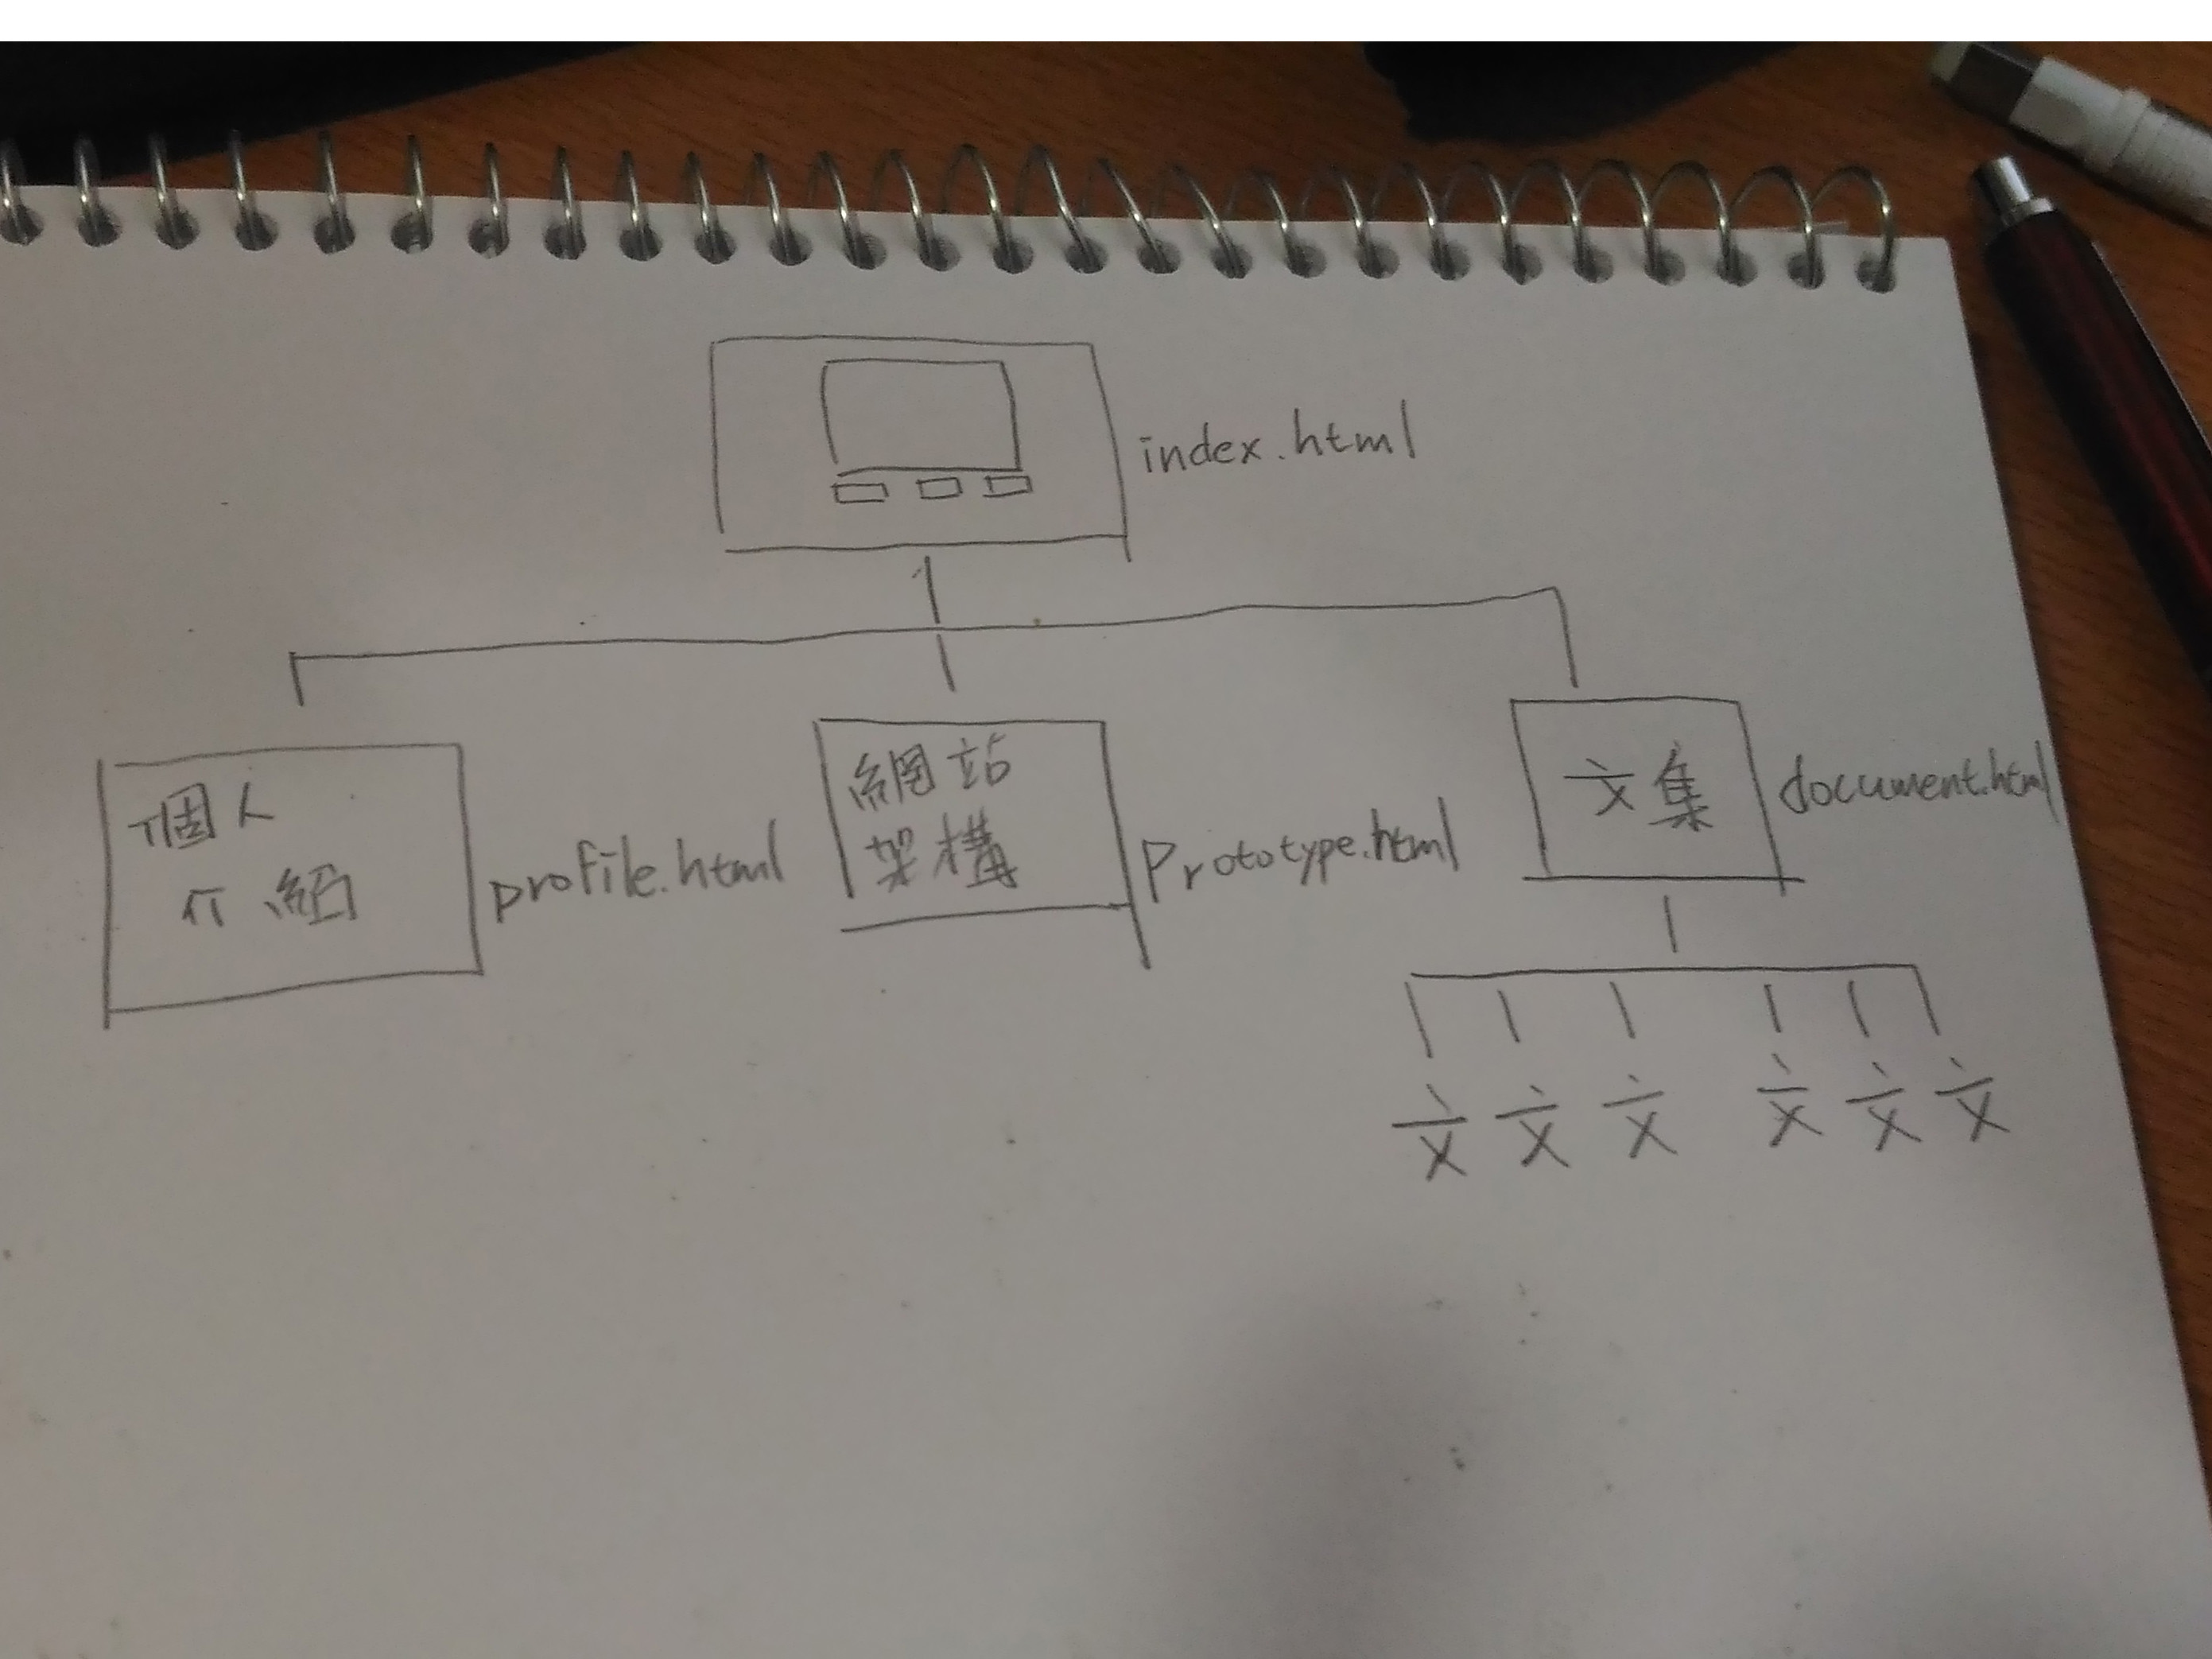 index.html
個人
介紹
profile.html
網站
架構
Prototype.html
文集
document.html
文 文 文 文 文 文